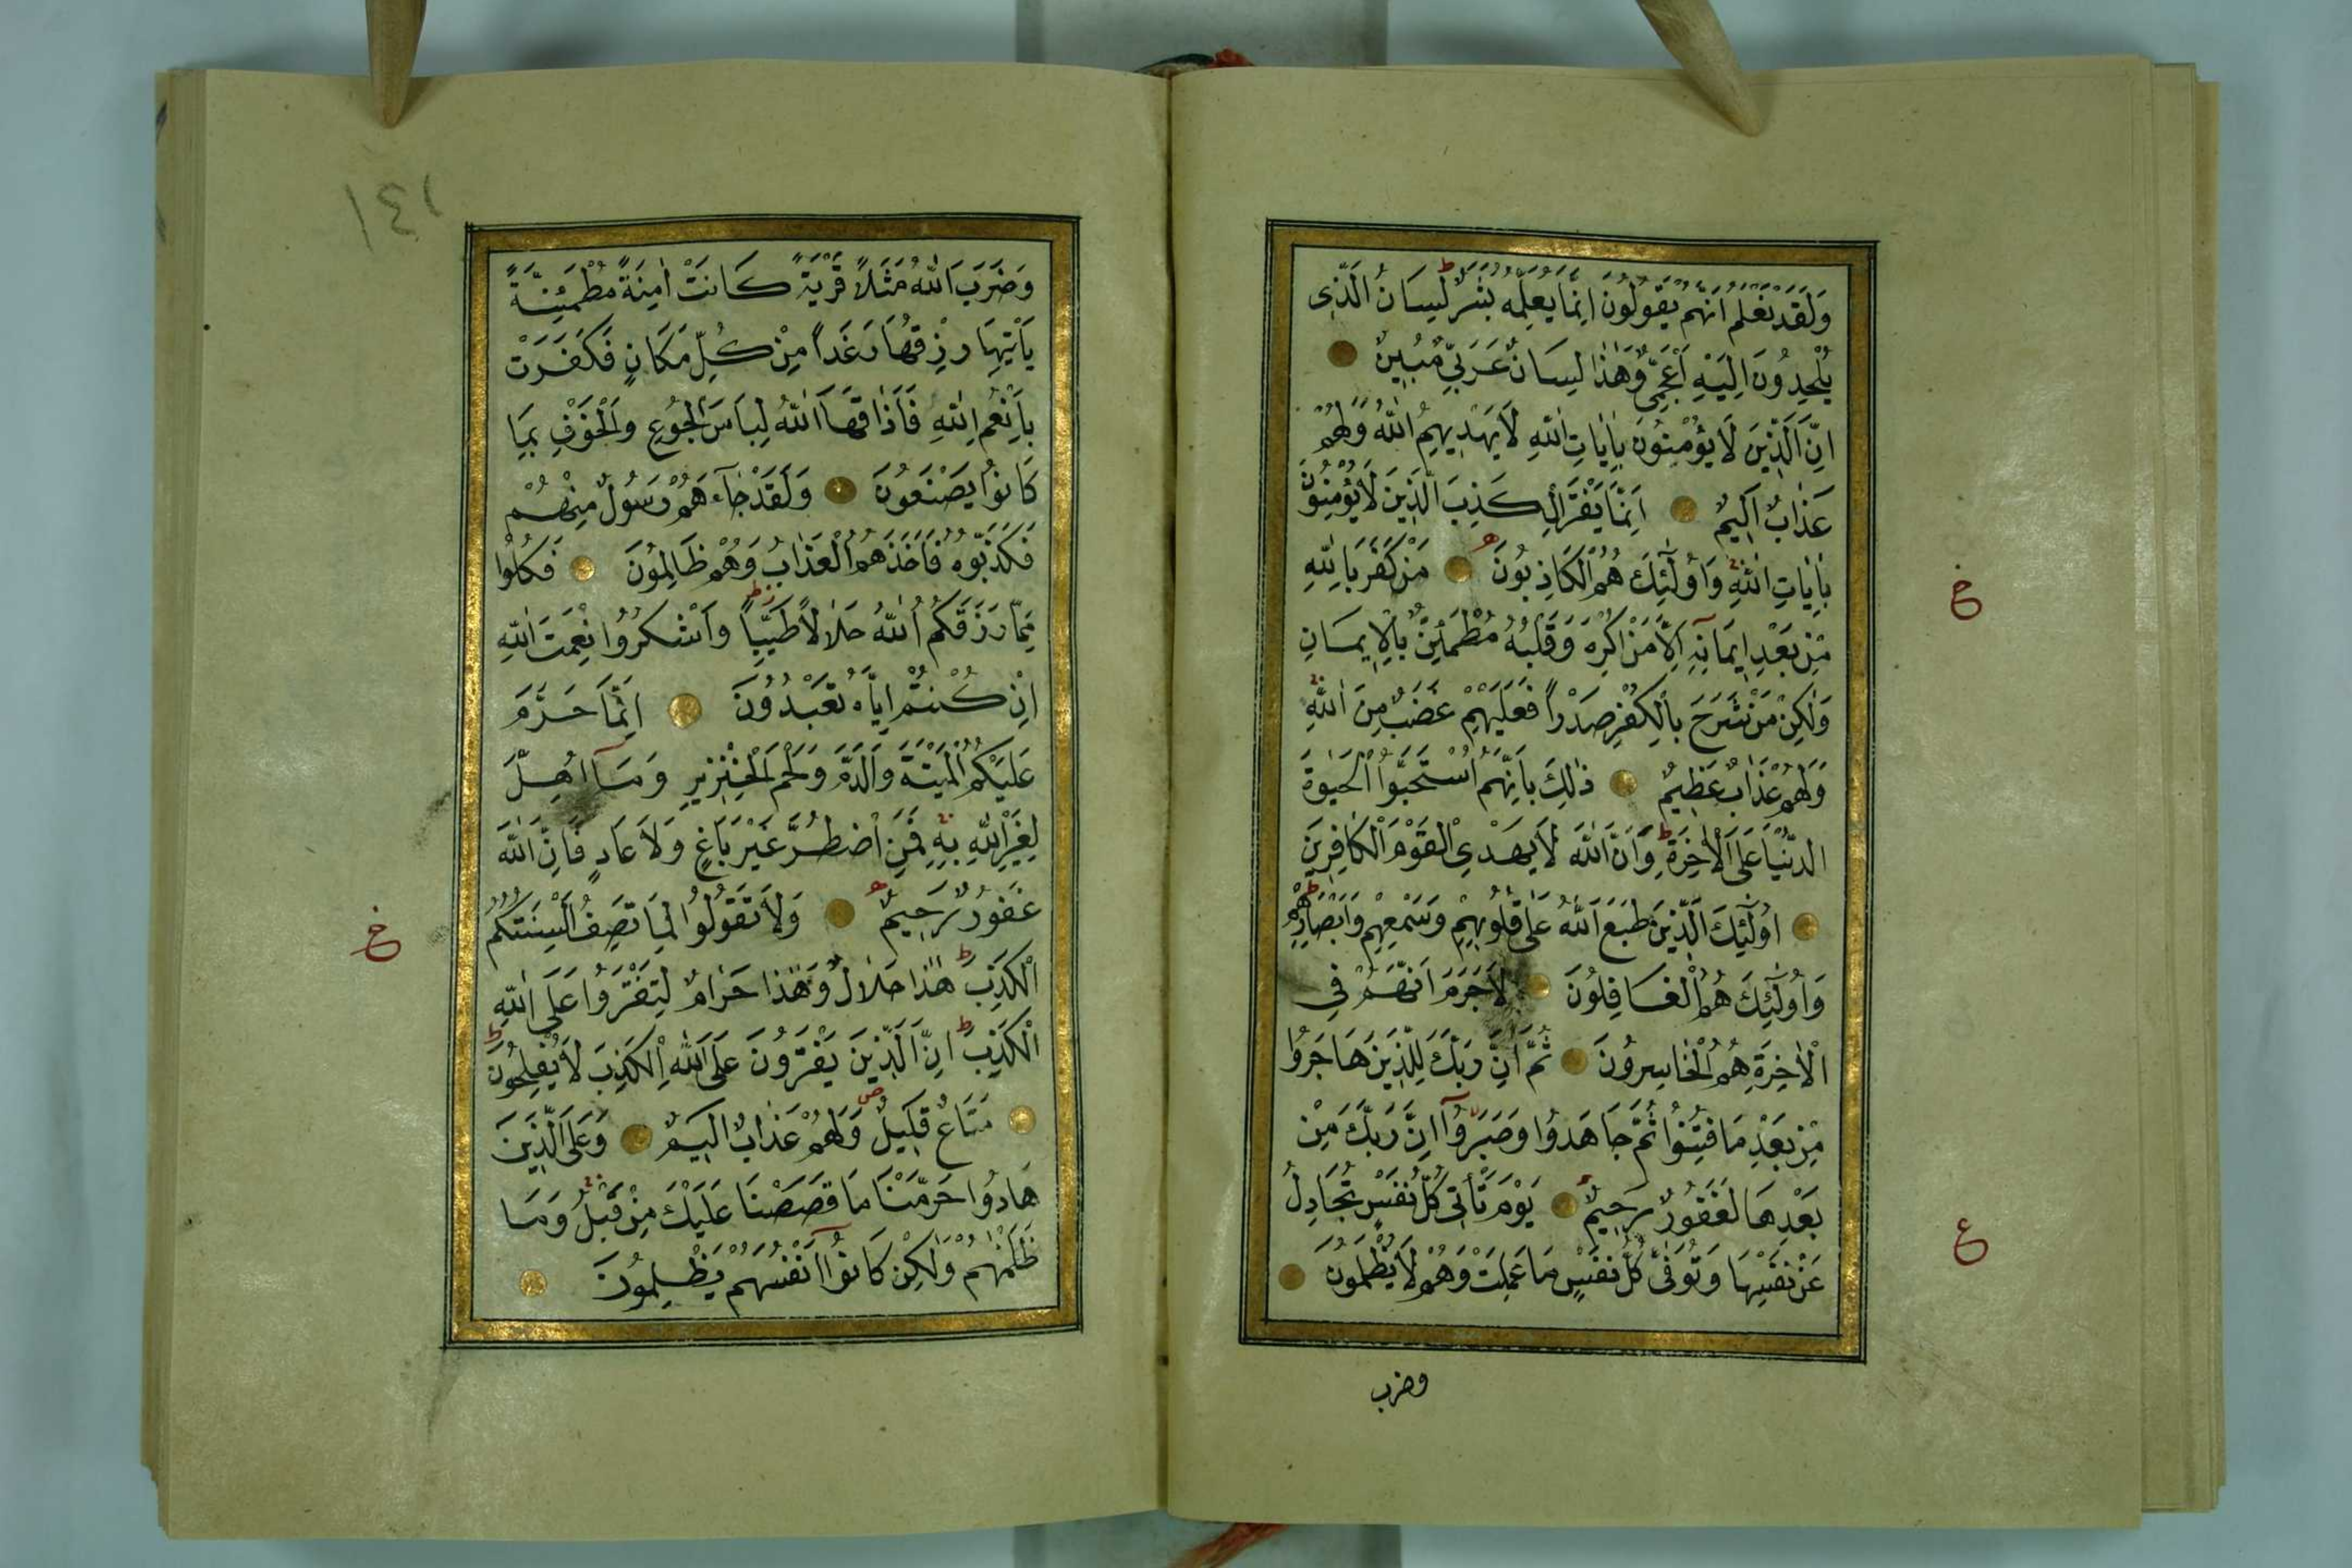 وَلَقَدْ نَعْلَمُ اَنَّهُمْ يَقُولُونَ اِنَّمَا يُعَلِّمُهُ بَشَرٌ ط لِسَانُ الَّذِى
يُلْحِدُونَ اِلَيْهِ اَعْجَمِىٌّ وَهٰذَا لِسَانٌ عَرَبِىٌّ مُبِينٌ
اِنَّ الَّذِينَ لَا يُؤْمِنُونَ بِاٰيَاتِ اللّٰهِ لَا يَهْدِيهِمُ اللّٰهُ وَلَهُمْ
عَذَابٌ اَلِيمٌ اِنَّمَا يَفْتَرِى الْكَذِبَ الَّذِينَ لَا يُؤْمِنُونَ
بِاٰيَاتِ اللّٰهِ وَاُولٰٓئِكَ هُمُ الْكَاذِبُونَ مَنْ كَفَرَ بِاللّٰهِ
خ
مِنْ بَعْدِ اِيمَانِهٖ اِلَّا مَنْ اُكْرِهَ وَقَلْبُهُ مُطْمَئِنٌّ بِالْاِيمَانِ
وَلٰكِنْ مَنْ شَرَحَ بِالْكُفْرِ صَدْرًا فَعَلَيْهِمْ غَضَبٌ مِنَ اللّٰهِ
وَلَهُمْ عَذَابٌ عَظِيمٌ ذٰلِكَ بِاَنَّهُمُ اسْتَحَبُّوا الْحَيٰوةَ
الدُّنْيَا عَلَى الْاٰخِرَةِ ط وَاَنَّ اللّٰهَ لَا يَهْدِى الْقَوْمَ الْكَافِرِينَ
اُولٰٓئِكَ الَّذِينَ طَبَعَ اللّٰهُ عَلٰى قُلُوبِهِمْ وَسَمْعِهِمْ وَاَبْصَارِهِمْ ط
وَاُولٰٓئِكَ هُمُ الْغَافِلُونَ لَا جَرَمَ اَنَّهُمْ فِى
الْاٰخِرَةِ هُمُ الْخَاسِرُونَ ثُمَّ اِنَّ رَبَّكَ لِلَّذِينَ هَاجَرُوا
مِنْ بَعْدِ مَا فُتِنُوا ثُمَّ جَاهَدُوا وَصَبَرُوٓا اِنَّ رَبَّكَ مِنْ
بَعْدِهَا لَغَفُورٌ رَحِيمٌ يَوْمَ تَأْتِى كُلُّ نَفْسٍ تُجَادِلُ
ع
عَنْ نَفْسِهَا وَتُوَفّٰى كُلُّ نَفْسٍ مَا عَمِلَتْ وَهُمْ لَا يُظْلَمُونَ
وضرب
١٤١
وَضَرَبَ اللّٰهُ مَثَلًا قَرْيَةً كَانَتْ اٰمِنَةً مُطْمَئِنَّةً
يَأْتِيهَا رِزْقُهَا رَغَدًا مِنْ كُلِّ مَكَانٍ فَكَفَرَتْ
بِاَنْعُمِ اللّٰهِ فَاَذَاقَهَا اللّٰهُ لِبَاسَ الْجُوعِ وَالْخَوْفِ بِمَا
كَانُوا يَصْنَعُونَ وَلَقَدْ جَاءَهُمْ رَسُولٌ مِنْهُمْ
فَكَذَّبُوهُ فَاَخَذَهُمُ الْعَذَابُ وَهُمْ ظَالِمُونَ فَكُلُوا
مِمَّا رَزَقَكُمُ اللّٰهُ حَلَالًا طَيِّبًا وَاشْكُرُوا نِعْمَتَ اللّٰهِ
اِنْ كُنْتُمْ اِيَّاهُ تَعْبُدُونَ اِنَّمَا حَرَّمَ
عَلَيْكُمُ الْمَيْتَةَ وَالدَّمَ وَلَحْمَ الْخِنْزِيرِ وَمَآ اُهِلَّ
لِغَيْرِ اللّٰهِ بِهٖ فَمَنِ اضْطُرَّ غَيْرَ بَاغٍ وَلَا عَادٍ فَاِنَّ اللّٰهَ
غَفُورٌ رَحِيمٌ وَلَا تَقُولُوا لِمَا تَصِفُ اَلْسِنَتُكُمُ
خ
الْكَذِبَ ط هٰذَا حَلَالٌ وَهٰذَا حَرَامٌ لِتَفْتَرُوا عَلَى اللّٰهِ
الْكَذِبَ ط اِنَّ الَّذِينَ يَفْتَرُونَ عَلَى اللّٰهِ الْكَذِبَ لَا يُفْلِحُونَ ط
مَتَاعٌ قَلِيلٌ ص وَلَهُمْ عَذَابٌ اَلِيمٌ وَعَلَى الَّذِينَ
هَادُوا حَرَّمْنَا مَا قَصَصْنَا عَلَيْكَ مِنْ قَبْلُ وَمَا
ظَلَمْنَاهُمْ وَلٰكِنْ كَانُوٓا اَنْفُسَهُمْ يَظْلِمُونَ